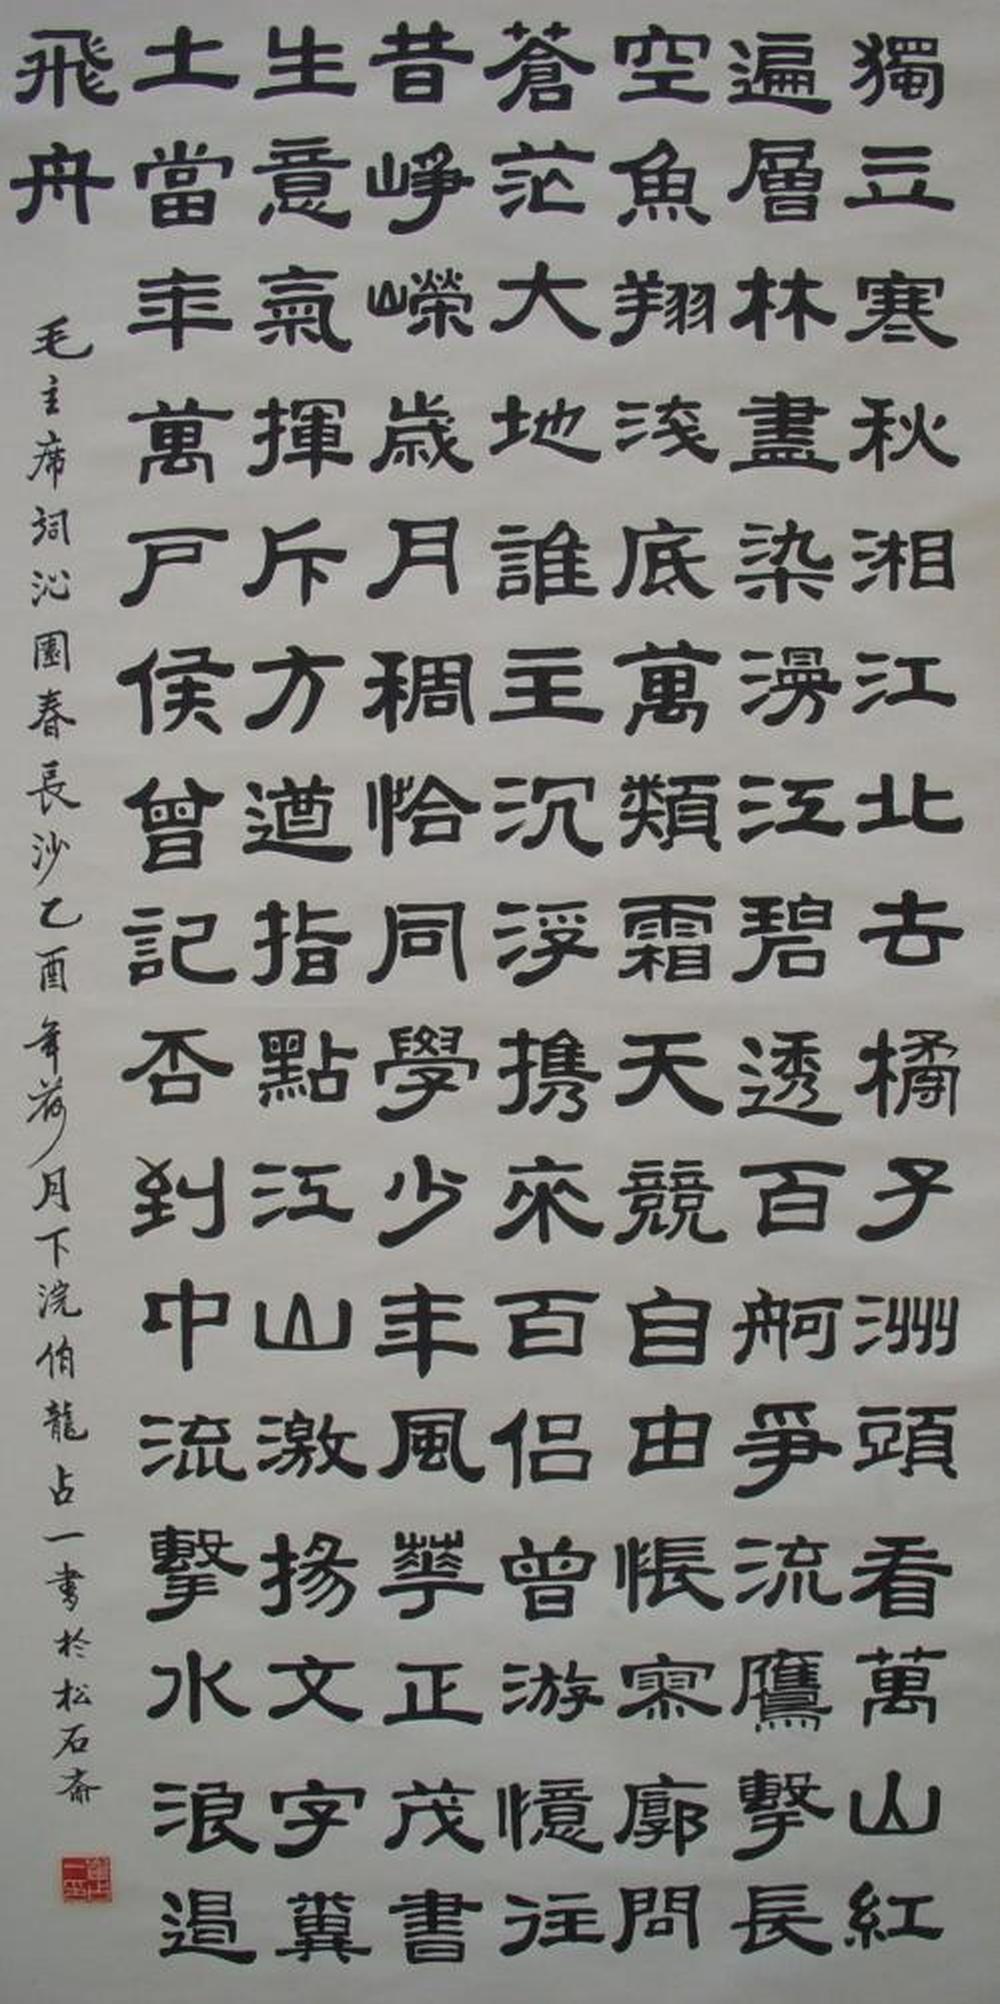 獨立寒秋湘江北去橘子洲頭看萬山紅
遍層林盡染漫江碧透百舸爭流鷹擊長
空魚翔淺底萬類霜天競自由悵寥廓問
蒼茫大地誰主沉浮携來百侣曾游憶往
昔崢嶸歲月稠恰同學少年風華正茂書
生意氣揮斥方遒指點江山激揚文字糞
土當年萬戶侯曾記否到中流擊水浪遏
飛舟
毛主席詞沁園春長沙乙酉年荷月下浣伯龍占一書於松石齋